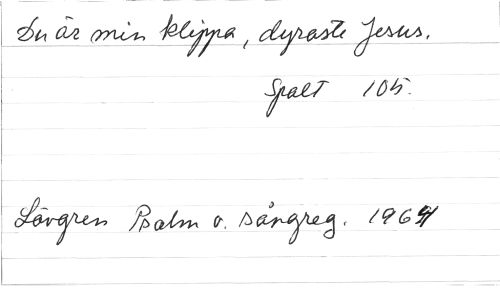 Du är min klippa, dyraste Jesus.
Spalt 105.
Lövgren Psalm o. sångreg. 1964